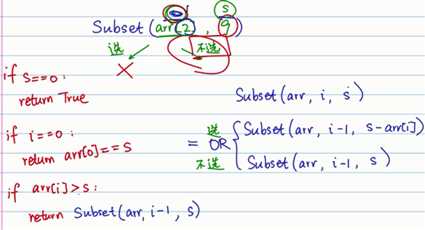 i s
Subset(arr, 2, 9)
选 不选
if s==0:
return True
Subset(arr, i, s)
if i==0:
return arr[0]==s
= OR
选 Subset(arr, i-1, s-arr[i])
不选 Subset(arr, i-1, s)
if arr[i]>s:
return Subset(arr, i-1, s)